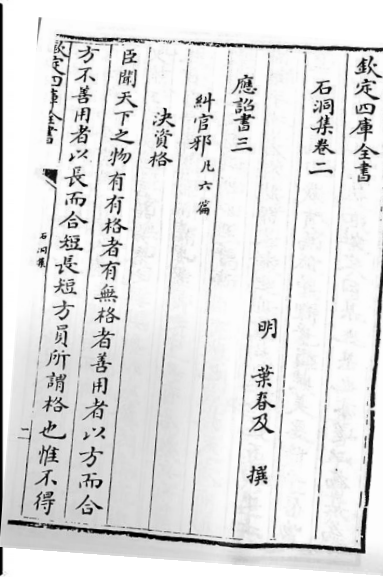 欽定四庫全書
石洞集卷二
明 葉春及 撰
應詔書三
糾官邪凡六篇
決資格
臣聞天下之物有有格者有無格者善用者以方而合
方不善用者以長而合短長短方員所謂格也惟不得
欽定四庫全書
石洞集
二